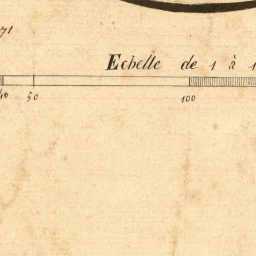 71
Echelle de 1 à 1
40 50 100